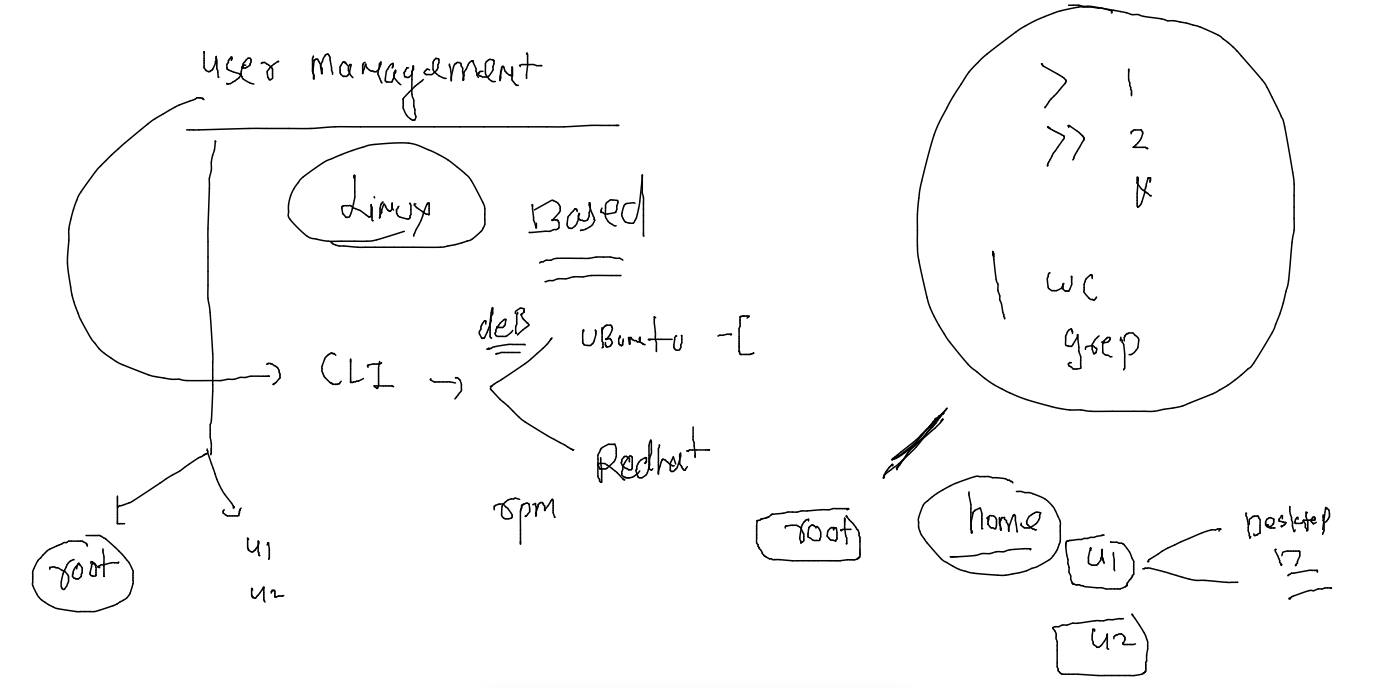 user management
Linux Based
deB
UBuntu -[
CLI →
Redhat
rpm
root
u1
u2
> 1
>> 2
| wc
grep
/
root
home
u1
Desktop
u2